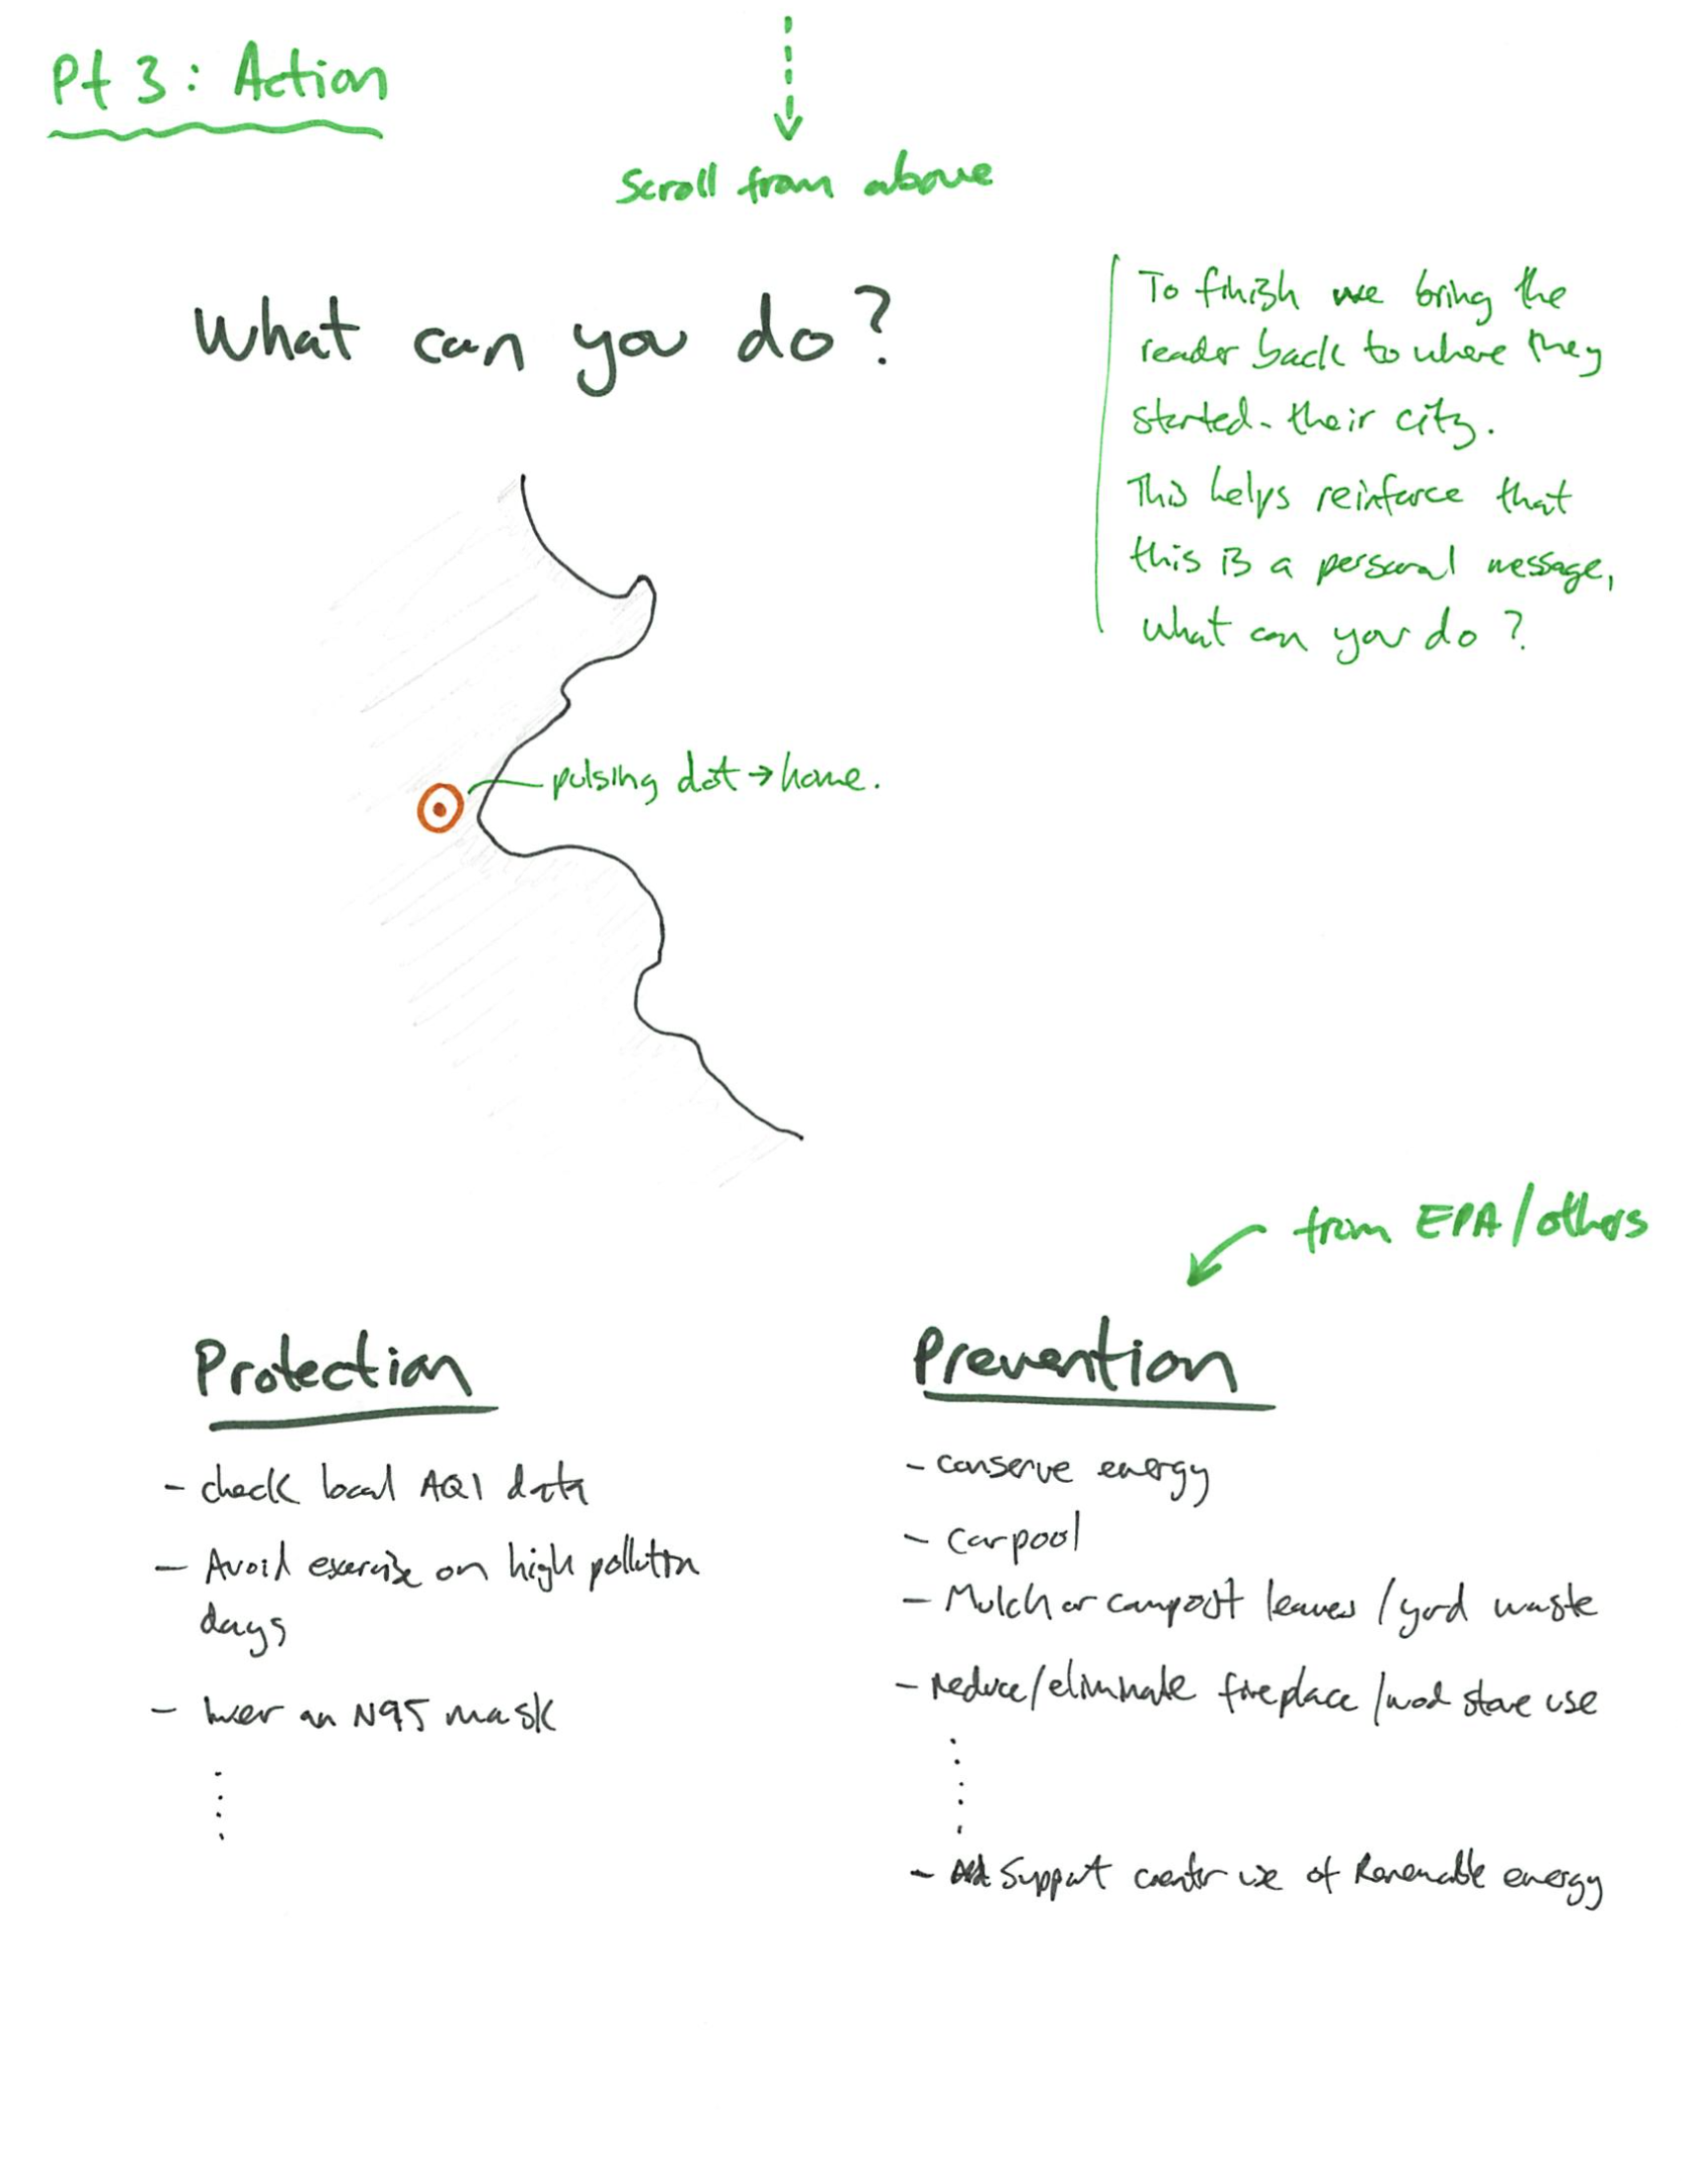 Pt 3: Action
Scroll from above
What can you do?
To finish we bring the
reader back to where they
started - their city.
This helps reinforce that
this is a personal message,
what can you do?
pulsing dot → home.
from EPA/others
Protection
- check local AQI data
- Avoid exercise on high pollution
days
- wear an N95 mask
Prevention
- conserve energy
- carpool
- Mulch or compost leaves / yard waste
- reduce/eliminate fireplace / wood stove use
- Support use of Renewable energy